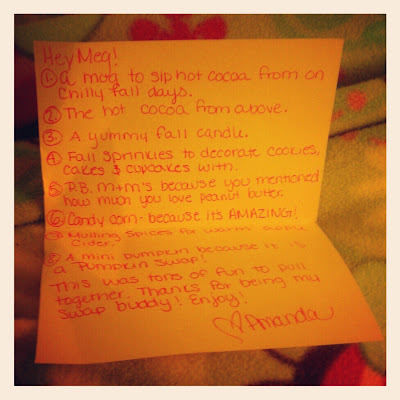 Hey Meg!
① A mug to sip hot cocoa from on
chilly fall days.
② The hot cocoa from above.
③ A yummy fall candle.
④ Fall sprinkles to decorate cookies,
cakes & cupcakes with.
⑤ P.B. M+M's because you mentioned
how much you love peanut butter.
⑥ Candy corn - because its AMAZING!
⑦ Mulling Spices for warm apple
Cider.
⑧ A mini pumpkin because it is
a Pumpkin Swap!
This was tons of fun to pull
together. Thanks for being my
swap buddy! Enjoy!
♡ Amanda